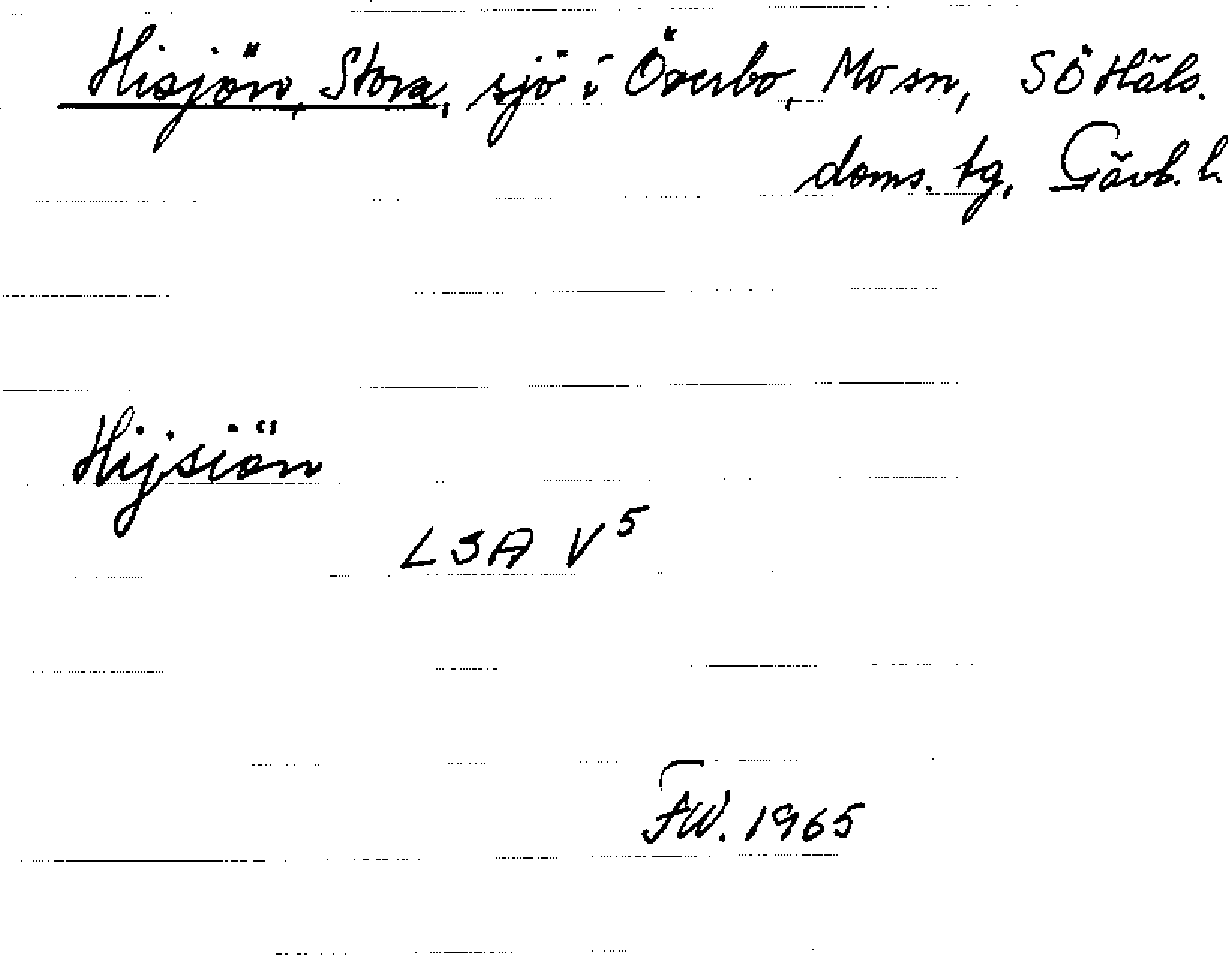 Hisjön, Stora, sjö i Överbo, Mo sn, SÖ Häls.
doms. tg, Gävb. l.
Hijsiön
LSA V⁵
FW. 1965